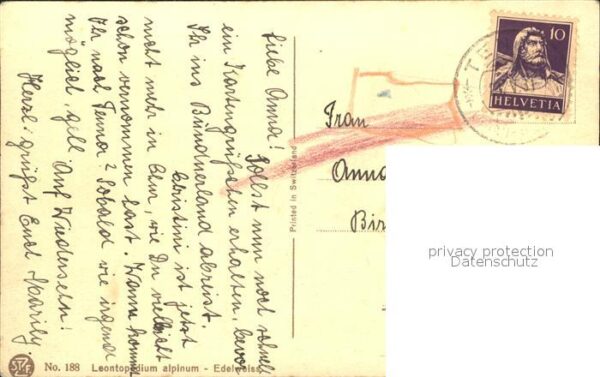 Liebe Anna!
Sollst nun noch schnell
ein Kartengrüsschen erhalten, bevor
Ihr ins Bündnerland abreist.
Christini ist jetzt
nicht mehr in Chur, wie Du vielleicht
schon vernommen hast. Wann kommt
Ihr nach Tenna? Sobald wie irgend
möglich, gell. Auf Wiedersehn!
Herzl. grüsst Euch Marily.
Frau
Anna
Bir
Printed in Switzerland
10
HELVETIA
TE
privacy protection
Datenschutz
No. 188 Leontopodium alpinum - Edelweiss